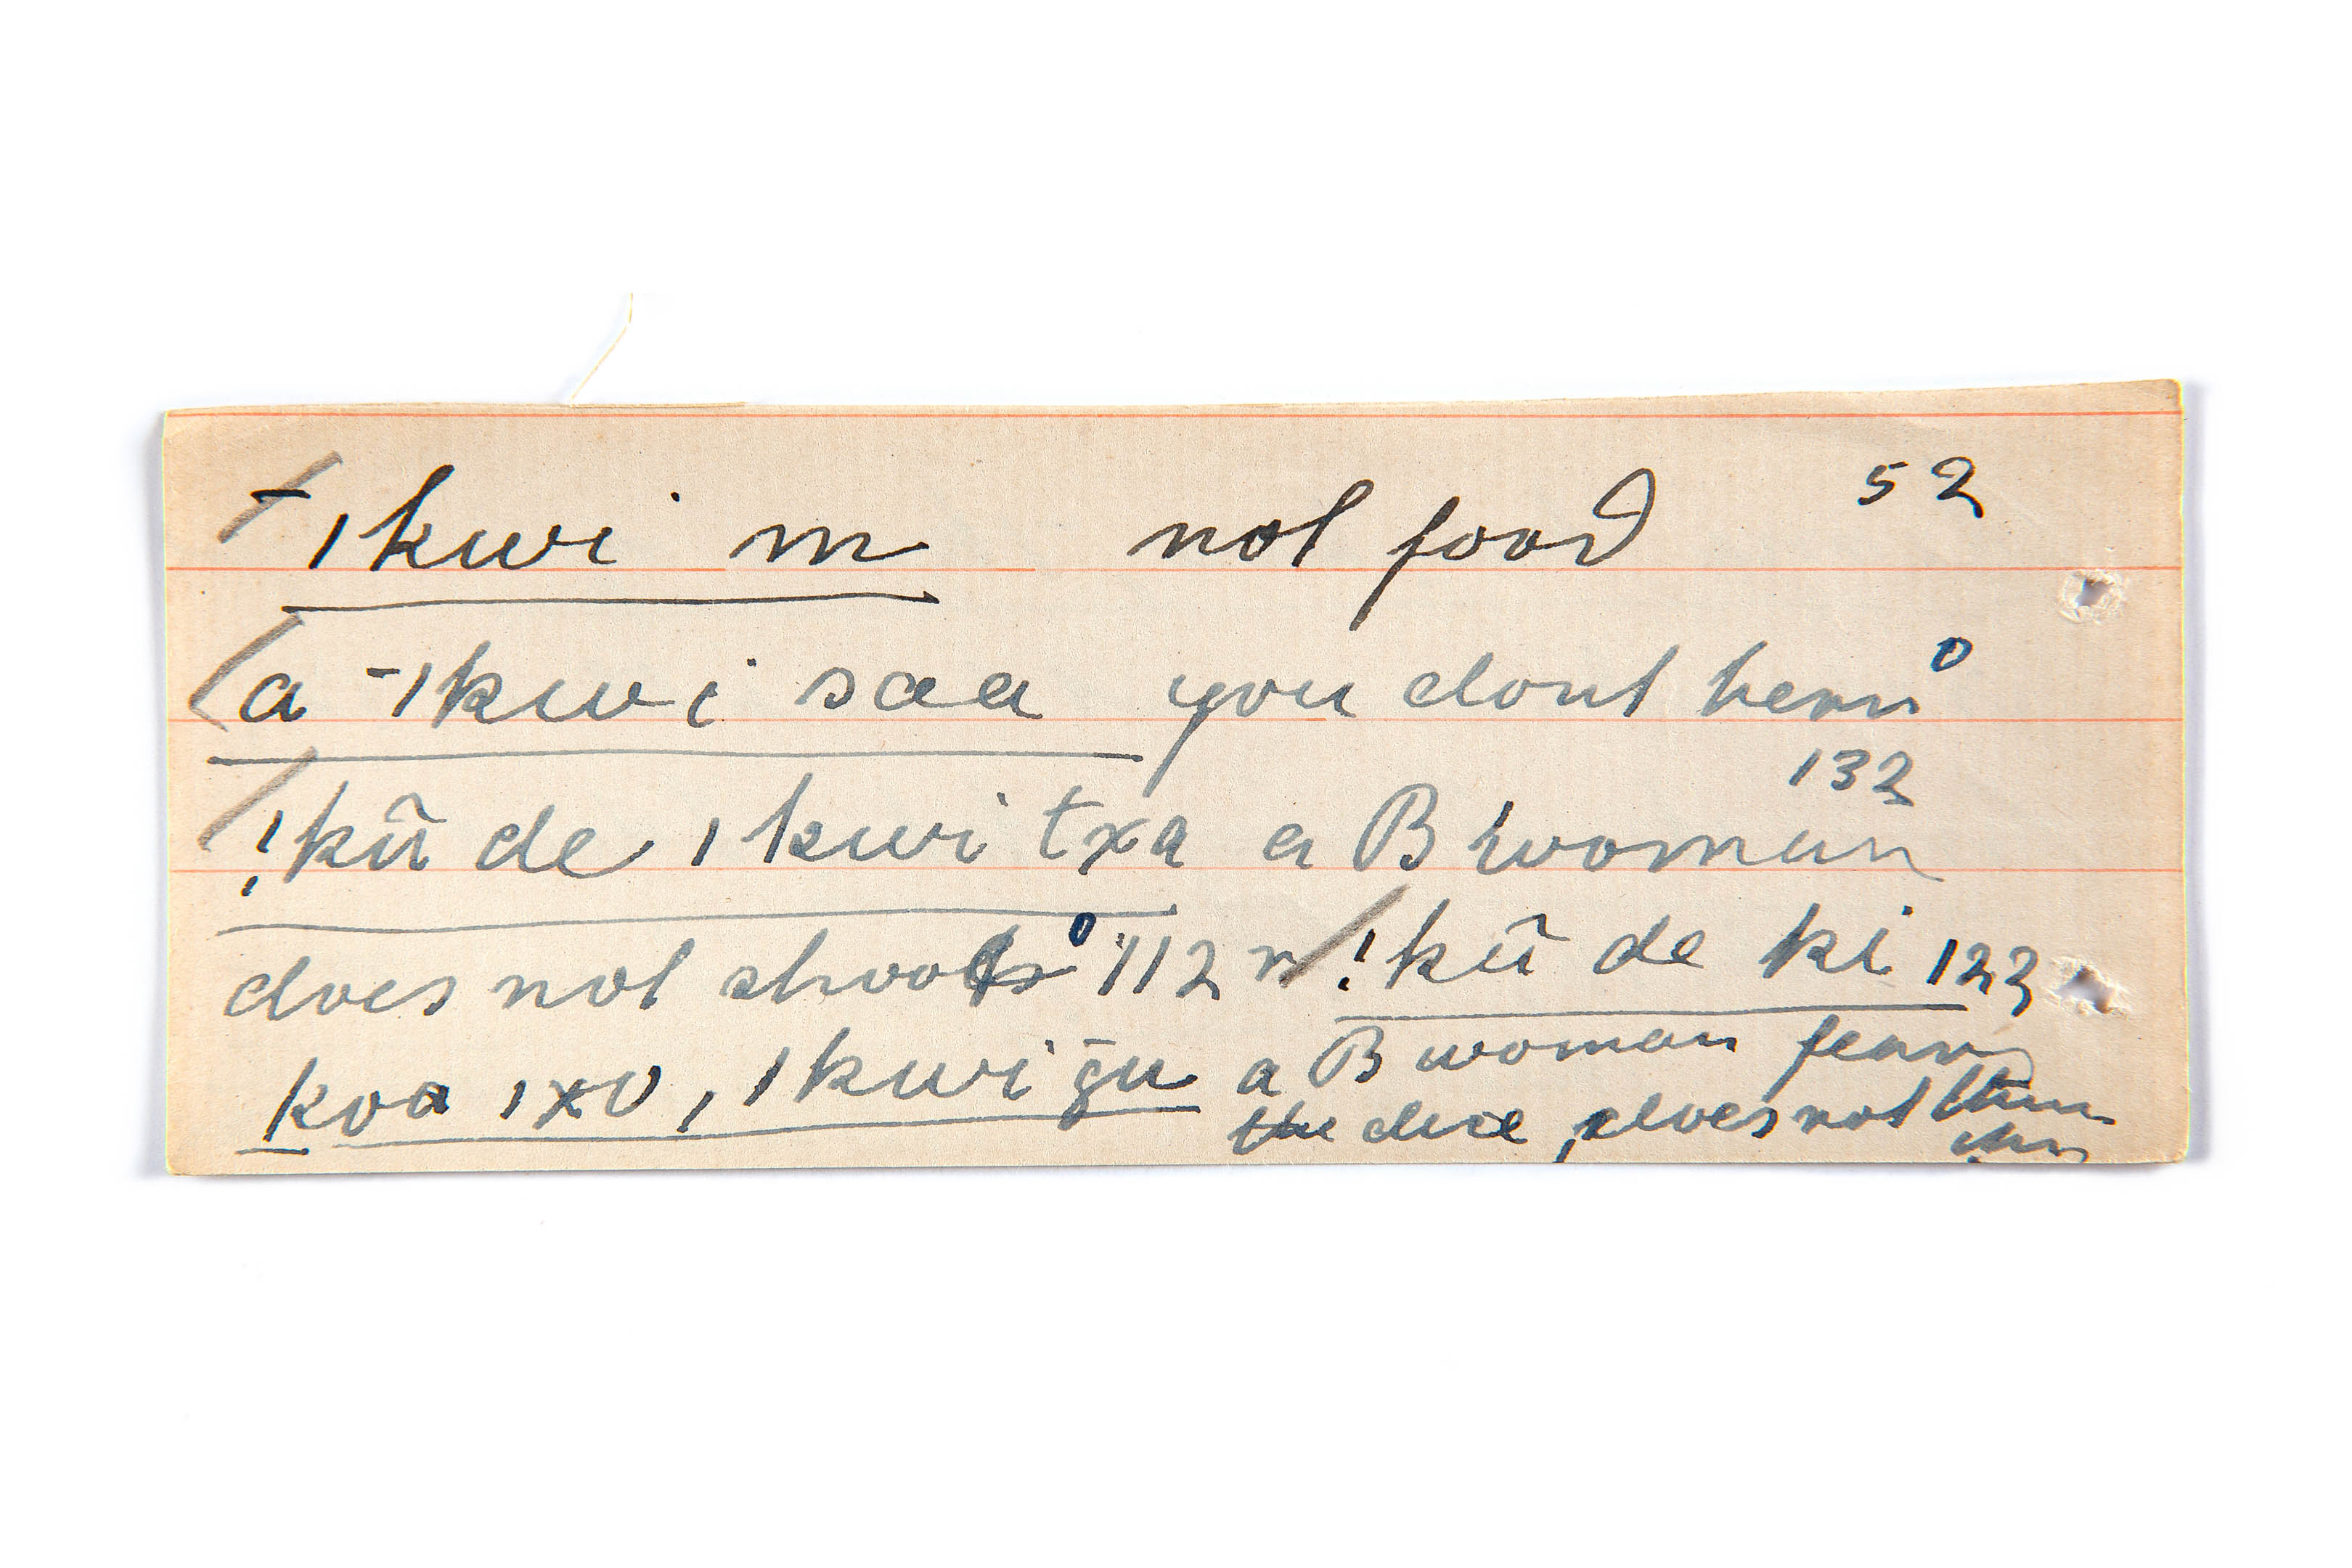 ¯ǀkwi m not food 52
a ¯ǀkwi saa you dont hear °
132
!kũ de ǀkwi txa a B woman
does not shoot ° 112 r !kũ de ki 123
koa ǀxo, ǀkwi ḡu a B woman fears
the dice, does not